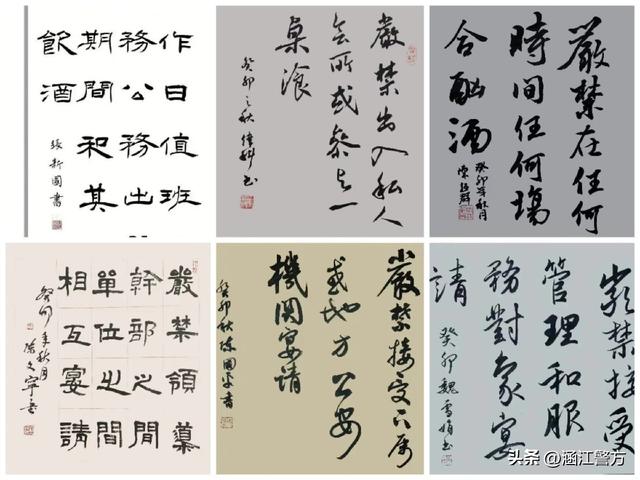 作日值班
務公務出
期間和其
飲酒
張新國書
嚴禁出入私人
会所或参与一
桌飡
癸卯之秋
嚴禁在任何
時间任何場
合酗酒
癸卯年秋月
嚴禁領導
幹部之間
單位之間
相互宴請
癸卯年秋月
陈文宁書
嚴禁接受下属
或地方公安
機関宴請
癸卯秋陈國
嚴禁接受
管理和服
務對象宴
請
癸卯魏雪娟书
头条 @涵江警方